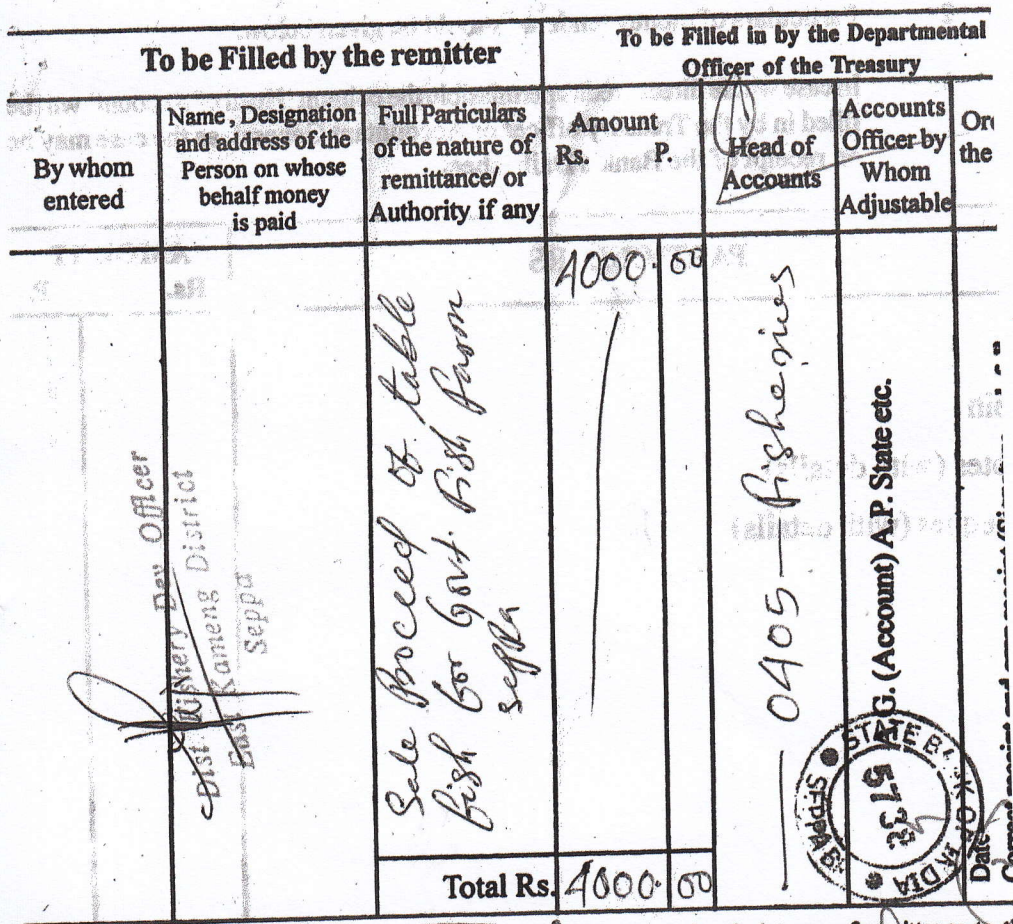 To be Filled by the remitter
To be Filled in by the Departmental
Officer of the Treasury
By whom
entered
Name, Designation
and address of the
Person on whose
behalf money
is paid
Full Particulars
of the nature of
remittance/ or
Authority if any
Amount
Rs. P.
Head of
Accounts
Accounts
Officer by
Whom
Adjustable
the
Dist Fishery Dev Officer
East Kameng District
Seppa
Sale Proceed of table
fish for Govt. Fish Farm
Seppa
4000. 00
0405 — Fisheries
A.G. (Account) A.P. State etc.
STATE BANK OF INDIA
SEPPA
5732
Date
Total Rs. 4000. 00